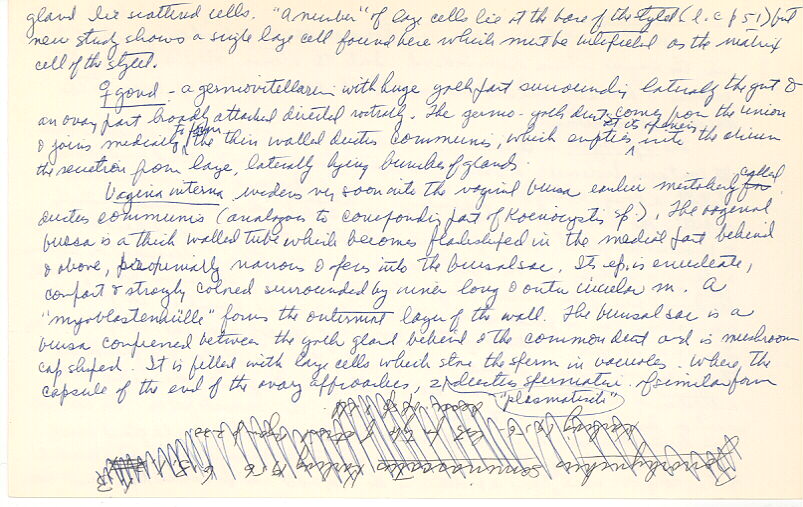 gland lie scattered cells. "A number" of large cells lie at the base of the stylet (l.c p 51) but
new study shows a single large cell found here which must be interpreted as the matrix
cell of the stylet.
♀ gonad - a germovitellarium with huge yolk part surrounding laterally the gut &
an ovary part broadly attached directed rostrally. The germo-yolk duct comes from the union
& joins medially to form the thin walled ductus communis, which empties into the
at its opening
the secretion from large, laterally lying bunches of glands.
Vagina interna widens very soon into the vaginal bursa earlier mistakenly called
ductus communis (analogous to corresponding part of Koinocystis sp.). The vaginal
bursa is a thick walled tube which becomes flask shaped in the medial part behind
& above, proximally narrows & opens into the bursal sac. Its ep. is enucleate,
compact & strongly colored surrounded by inner long & outer circular m. A
"myoblastenhülle" forms the outermost layer of the wall. The bursal sac is a
bursa compressed between the yolk gland behind & the common duct and is mushroom
cap shaped. It is filled with large cells which store the sperm in vacuoles. Where the
capsule of the end of the ovary approaches, 2 ductus spermatici of similar form
"plasmatische"